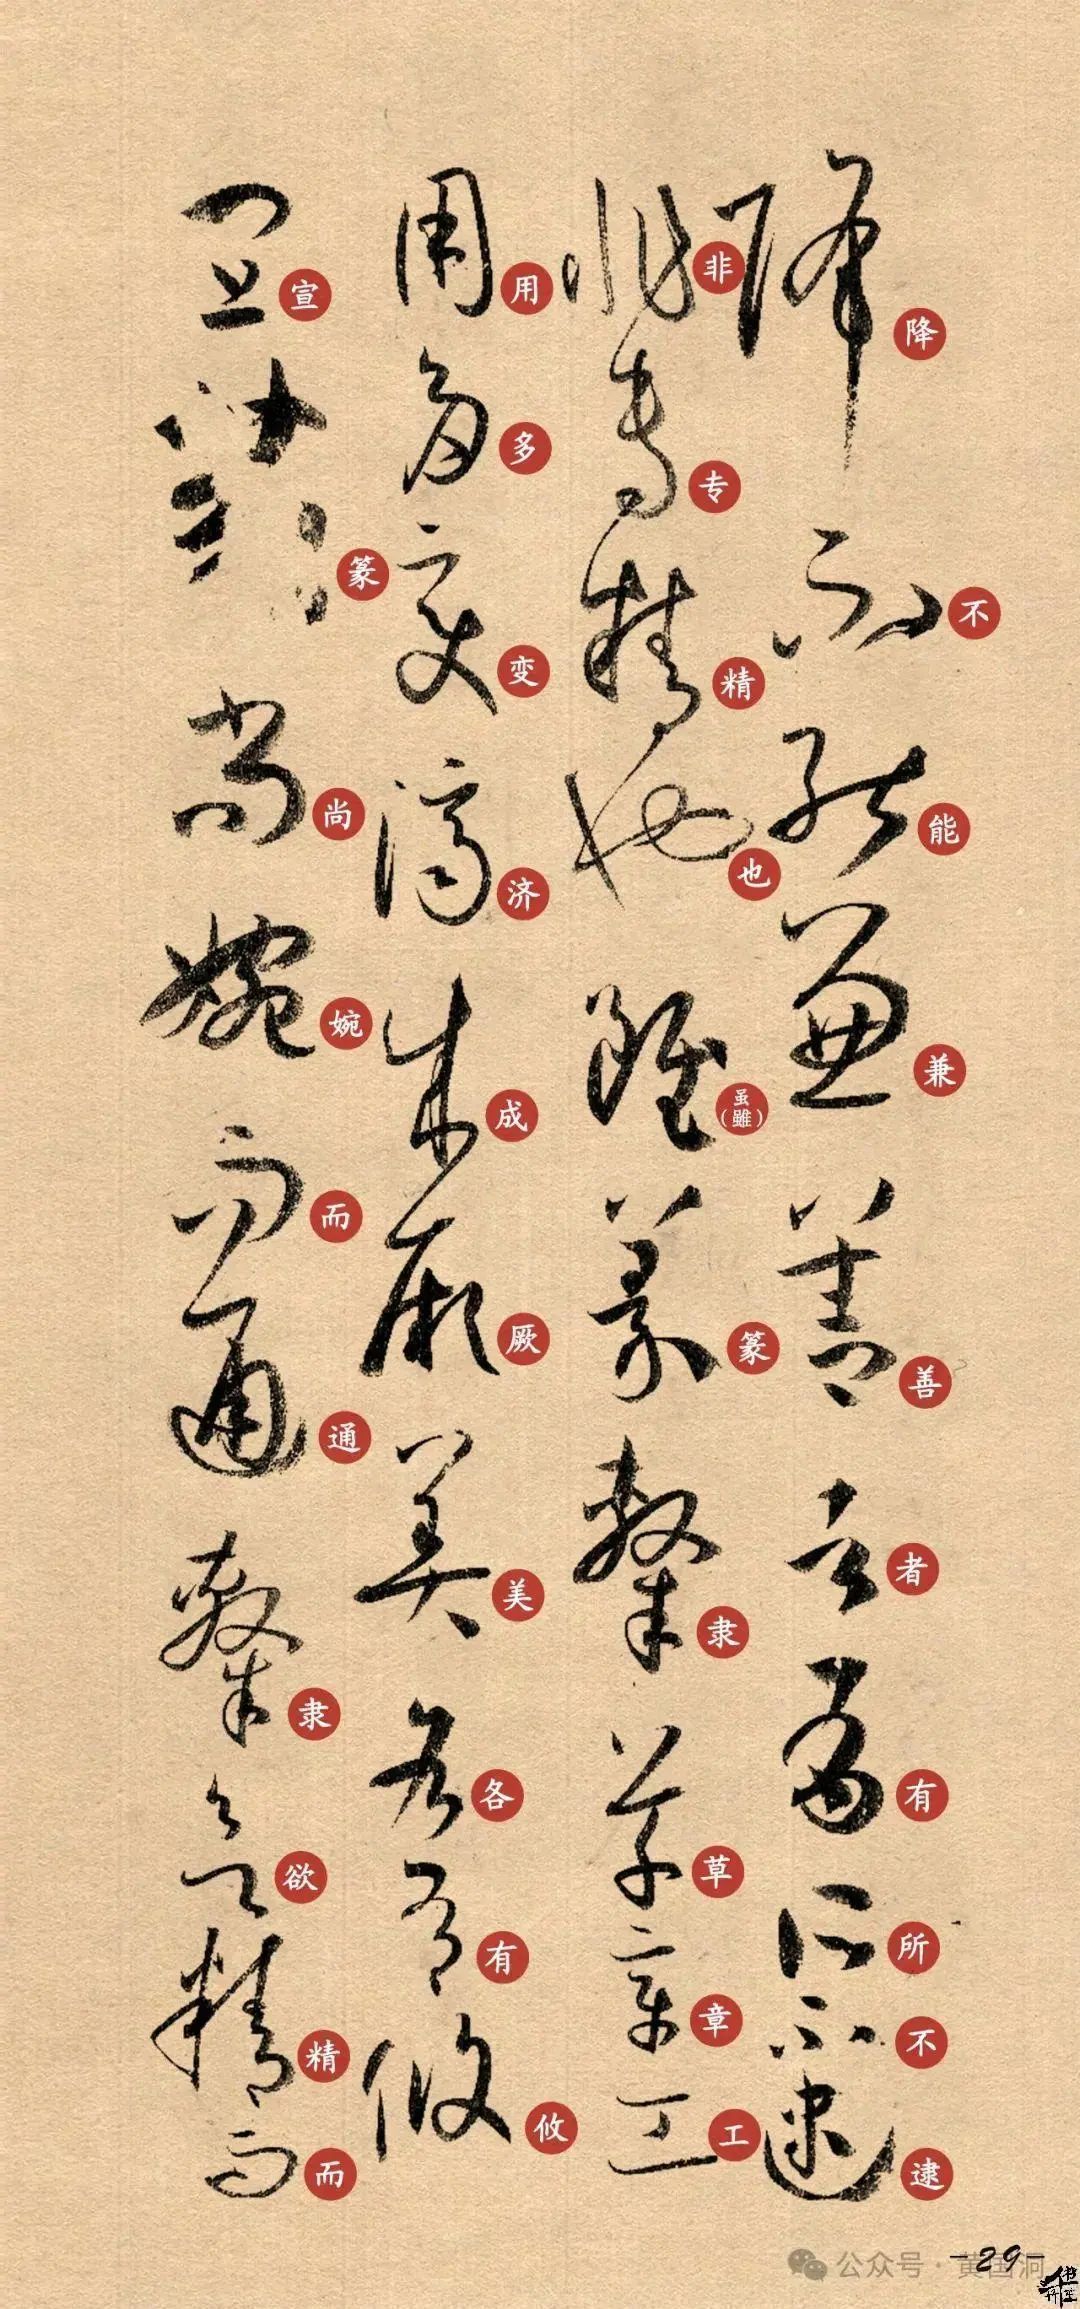 降不能兼善者有所不逮
非专精也虽(雖)篆隶草章工
用多变济成厥美各有攸
宣篆尚婉而通隶欲精而
公众号·黄国洞
-29-